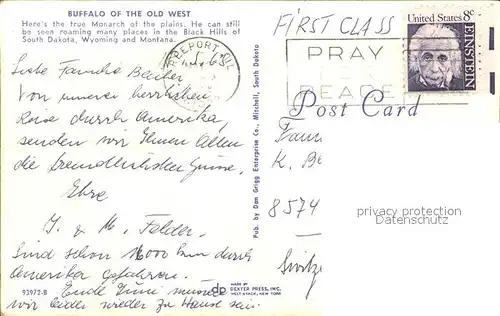 BUFFALO OF THE OLD WEST
Here's the true Monarch of the plains. He can still
be seen roaming many places in the Black Hills of
South Dakota, Wyoming and Montana.
FIRST CLASS
FREEPORT ILL
PRAY
PEACE
United States 8c
EINSTEIN
Post Card
Liebe Familie
Von unserer herrlichen
Reise durch Amerika,
senden wir Ihnen Allen
die freundlichsten Grüsse,
Ehre
J. & M. Felder.
Sind schon 16000 km durch
Amerika gefahren.
Ende Juni müssen
wir leider wieder zu Hause sein.
Pub. by Dan Grigg Enterprise Co., Mitchell, South Dakota
Fam
K. Be
8574
privacy protection
Datenschutz
93972-B
dp
MADE BY
DEXTER PRESS, INC.
WEST NYACK, NEW YORK